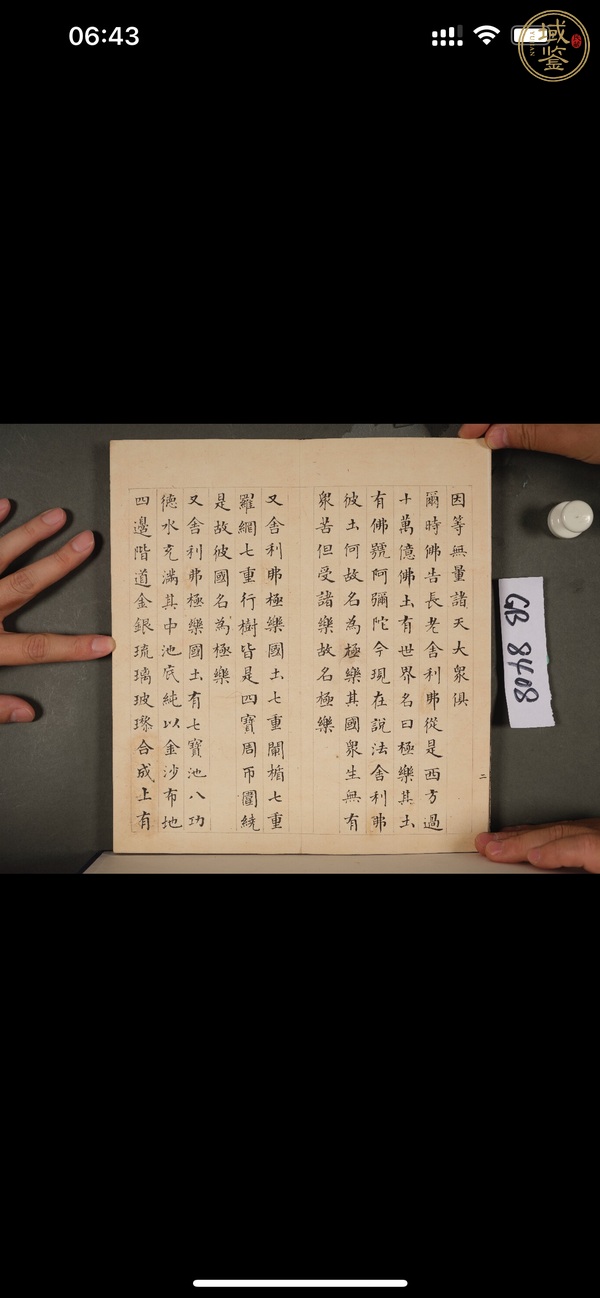 06:43
域鉴
因等無量諸天大衆俱
爾時佛告長老舍利弗從是西方過
十萬億佛土有世界名曰極樂其土
有佛號阿彌陀今現在說法舍利弗
彼土何故名為極樂其國衆生無有
衆苦但受諸樂故名極樂
又舍利弗極樂國土七重闌楯七重
羅網七重行樹皆是四寶周帀圍繞
是故彼國名為極樂
又舍利弗極樂國土有七寶池八功
德水充滿其中池底純以金沙布地
四邊階道金銀琉璃玻瓈合成上有
二
GB 8408